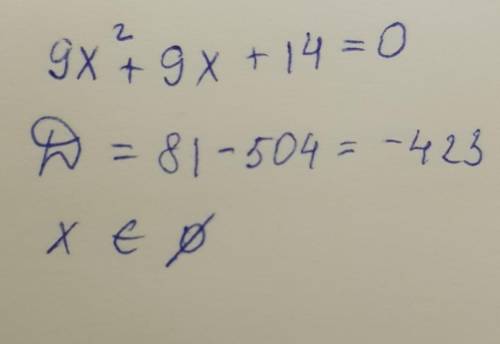 9x² + 9x + 14 = 0
D = 81 - 504 = -423
x ∈ ∅